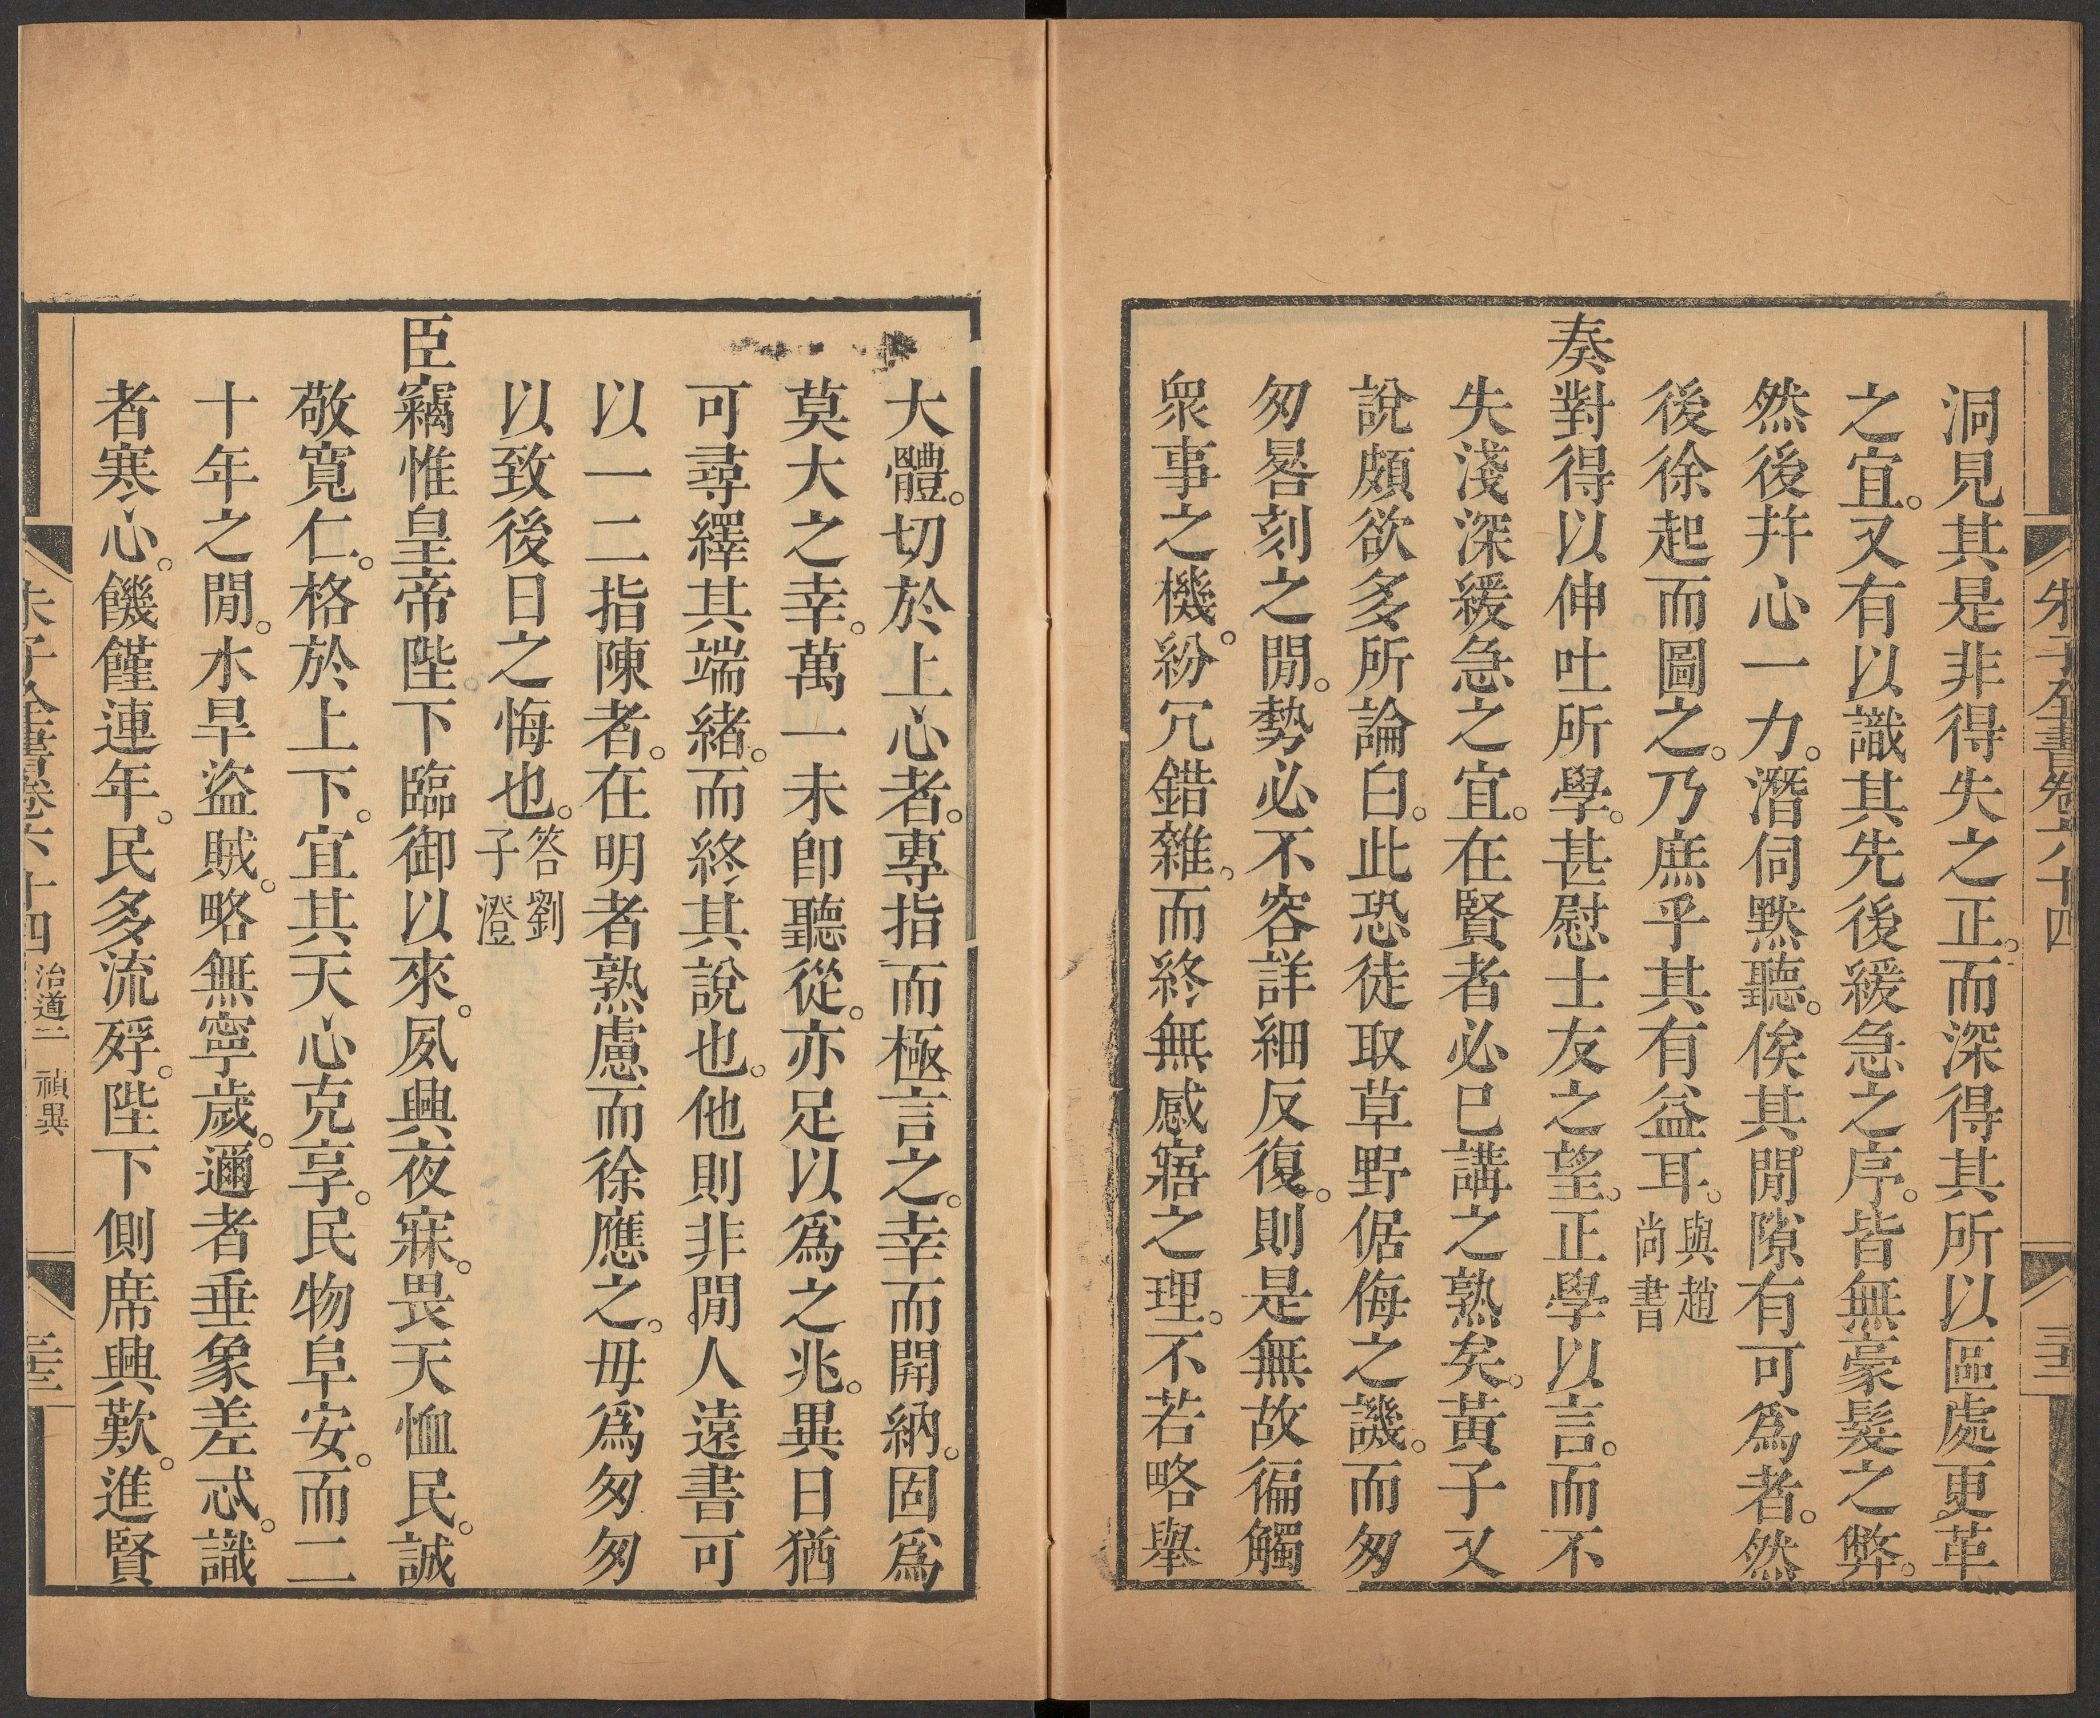 朱子全書卷六十四
洞見其是非得失之正。而深得其所以區處更革
之宜。又有以識其先後緩急之序。皆無豪髮之弊。
然後幷心一力。潛伺默聽。俟其閒隙有可爲者。然
後徐起而圖之。乃庶乎其有益耳。與趙尚書
奏對得以伸吐所學。甚慰士友之望。正學以言。而不
失淺深緩急之宜。在賢者必已講之熟矣。黃子又
說頗欲多所論白。此恐徒取草野倨侮之譏。而匆
匆晷刻之閒。勢必不容詳細反復。則是無故徧觸
衆事之機。紛冗錯雜。而終無感寤之理。不若略舉
大體。切於上心者。專指而極言之。幸而開納。固爲
莫大之幸。萬一未卽聽從。亦足以爲之兆。異日猶
可尋繹其端緒。而終其說也。他則非閒人遠書可
以一二指陳者。在明者熟慮而徐應之。毋爲匆匆
以致後日之悔也。答劉子澄
臣竊惟皇帝陛下臨御以來。夙興夜寐。畏天恤民。誠
敬寬仁。格於上下。宜其天心克享。民物阜安。而二
十年之閒。水旱盜賊。略無寧歲。邇者垂象差忒。識
者寒心。饑饉連年。民多流殍。陛下側席興歎。進賢
朱子全書卷六十四 治道二 禎異